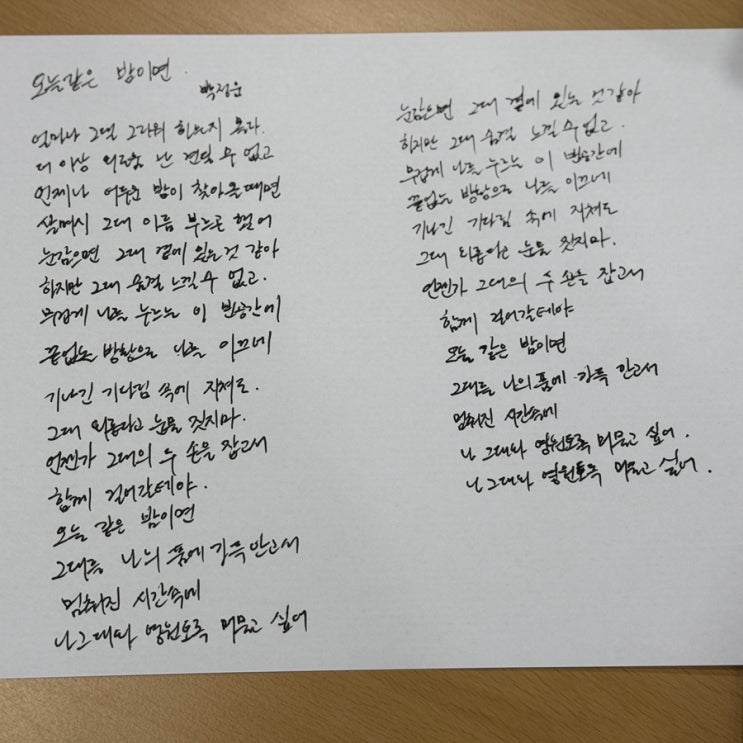 오늘같은 밤이면.
박정운
얼마나 그댈 그리워 하는지 몰라.
더 이상 외로움 난 견딜 수 없고
언제나 어두운 밤이 찾아올때면
살며시 그대 이름 부르곤 했어
눈감으면 그대 곁에 있는것 같아
하지만 그대 숨결 느낄수 없고.
무겁게 나를 누르는 이 빈공간에
끝없는 방황으로 나를 이끄네
기나긴 기다림 속에 지쳐도.
그대 외롭다고 눈물 짓지마.
언젠가 그대의 두 손을 잡고서
함께 걸어갈테야.
오늘 같은 밤이면
그대를 나의 품에 가득 안고서
멈춰진 시간속에
나 그대와 영원토록 머물고 싶어
눈감으면 그대 곁에 있는 것 같아
하지만 그대 숨결 느낄 수 없고.
무겁게 나를 누르는 이 빈공간에
끝없는 방황으로 나를 이끄네
기나긴 기다림 속에 지쳐도
그대 외롭다고 눈물 짓지마.
언젠가 그대의 두 손을 잡고서
함께 걸어갈테야
오늘 같은 밤이면
그대를 나의 품에 가득 안고서
멈춰진 시간속에
나 그대와 영원토록 머물고 싶어.
나 그대와 영원토록 머물고 싶어.